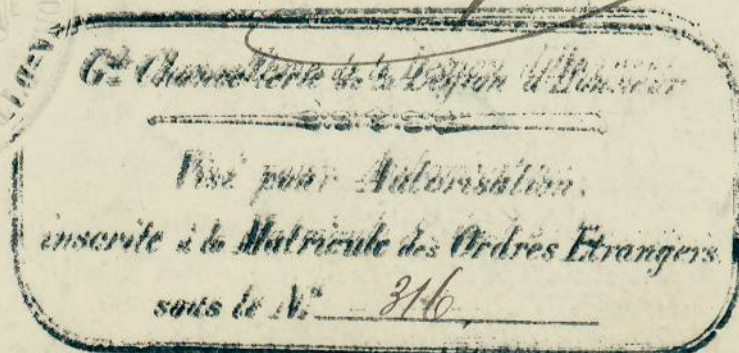 Gde Chancellerie de la Légion d'Honneur
Visé pour Autorisation.
inscrite à la Matricule des Ordres Etrangers
sous le N° 316